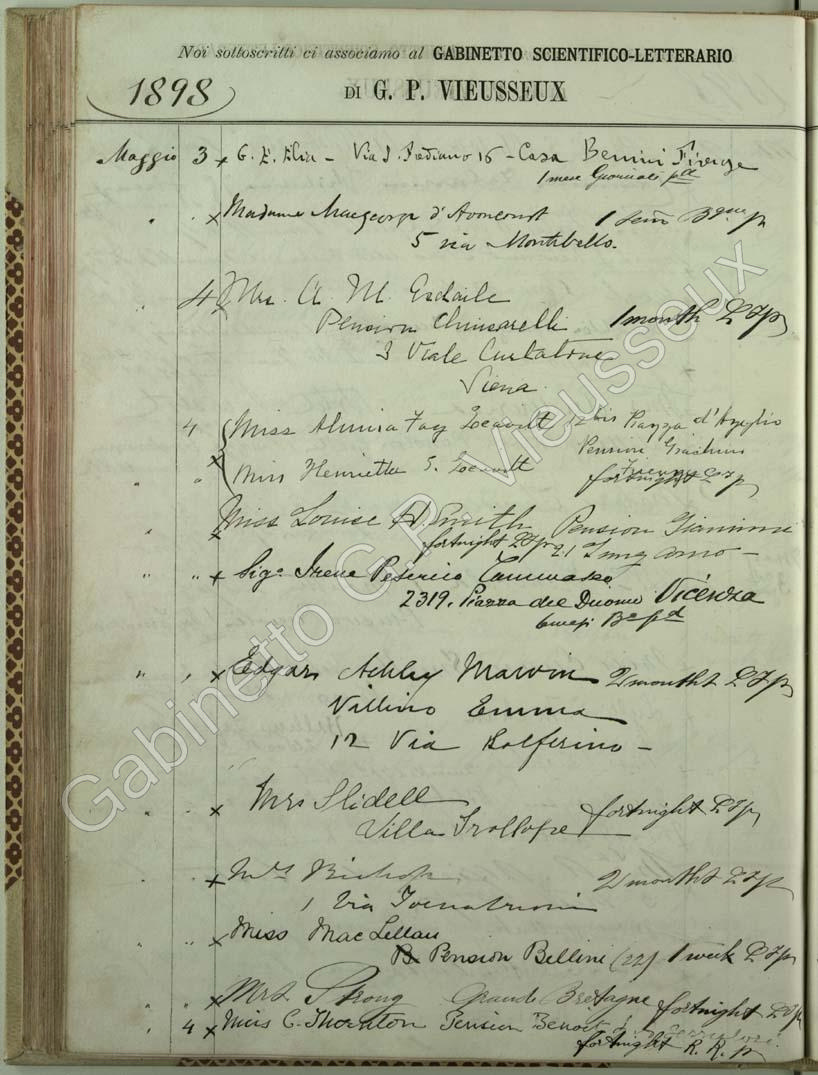 Noi sottoscritti ci associamo al GABINETTO SCIENTIFICO-LETTERARIO
1898
DI G. P. VIEUSSEUX
Maggio 3 x G. E. Elia - Via S. Frediano 16 - Casa Bernini Firenze
1 mese Giornali
" x Madame d'Avoncourt 1
5 via Montebello.
" 4 Mrs. A. M. Esdaile
Pension Chiusarelli 1 month
3 Viale Curtatone
Siena.
4 Miss Almira Fay Leavitt 12 bis Piazza d'Azeglio
Pension
" x Miss Henrietta S. Leavitt Firenze
fortnight
x Miss Louise H. Smith Pension Giannini
fortnight 21 Lung'arno -
" " x Sig.a Irene Peserico Tommasko
2319. Piazza del Duomo Vicenza
6 mesi
" " x Edgar Ashley Marvin 2 months
Villino Emma
12 Via Solferino -
" " x Mrs Slidell fortnight
Villa Trollope
" x Mrs Bishop 2 months
1 Via Tornabuoni
" " x Miss MacLellan
Pension Bellini (22) 1 week
" " x Mrs Strong Grande Bretagne fortnight
" 4 x Miss C. Thornton Pension Benoit
fortnight R. R. p
Gabinetto G.P. Vieusseux